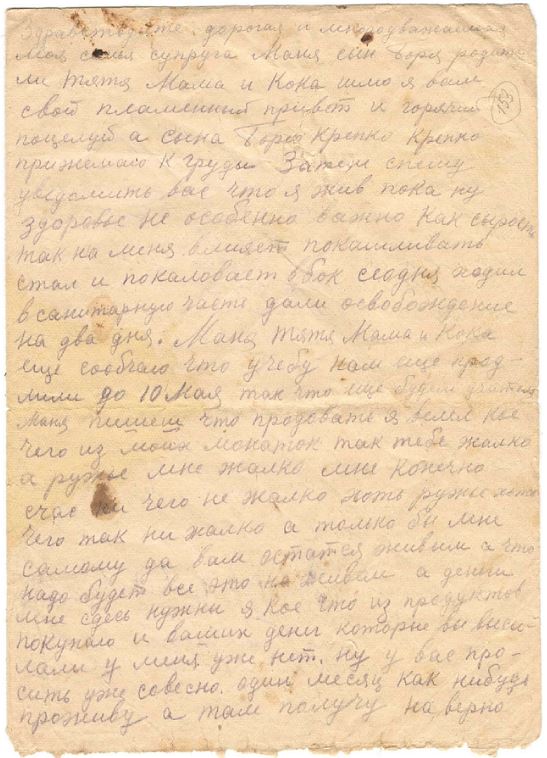 Здравствуйте дорогая и многоуважаемая
моя семья супруга Маня сын Боря родите
ли тятя Мама и Кока шлю я вам
свой пламенный привет и горячий
поцелуй а сына Борю крепко крепко
153
прижемаю к груди Затем спешу
уведомить вас что я жив пока ну
здоровье не особенно важно как сырость
так на меня влияет покашливать
стал и покаловает в бок сеодня ходил
в санитарную часть дали освобождение
на два дня. Маня тятя Мама и Кока
еще сообчаю что учебу нам еще прод-
лили до 10 Мая так что еще будем учится
Маня пишеш что продовать я велел кое
чего из моих монаток так тебе жалко
а ружье мне жалко мне конечно
счас ни чего не жалко хоть ружье хоть
чего так ни жалко а только бы мне
самому да вам остатся живым а что
надо будет все это на живем а деньги
мне сдесь нужны я кое что из продуктов
покупаю и ваших денег которые вы высы-
лали у меня уже нет. ну у вас про-
сить уже совесно. один месяц как нибудь
проживу а там получу на верно